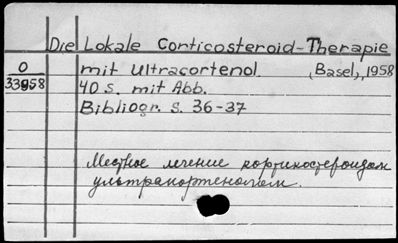 Die Lokale Corticosteroid-Therapie
0 mit Ultracortenol. (Basel), 1958
33958 40 S. mit Abb.
Bibliogr. S. 36-37
Местное лечение кортикостероидом
ультракортенолом.